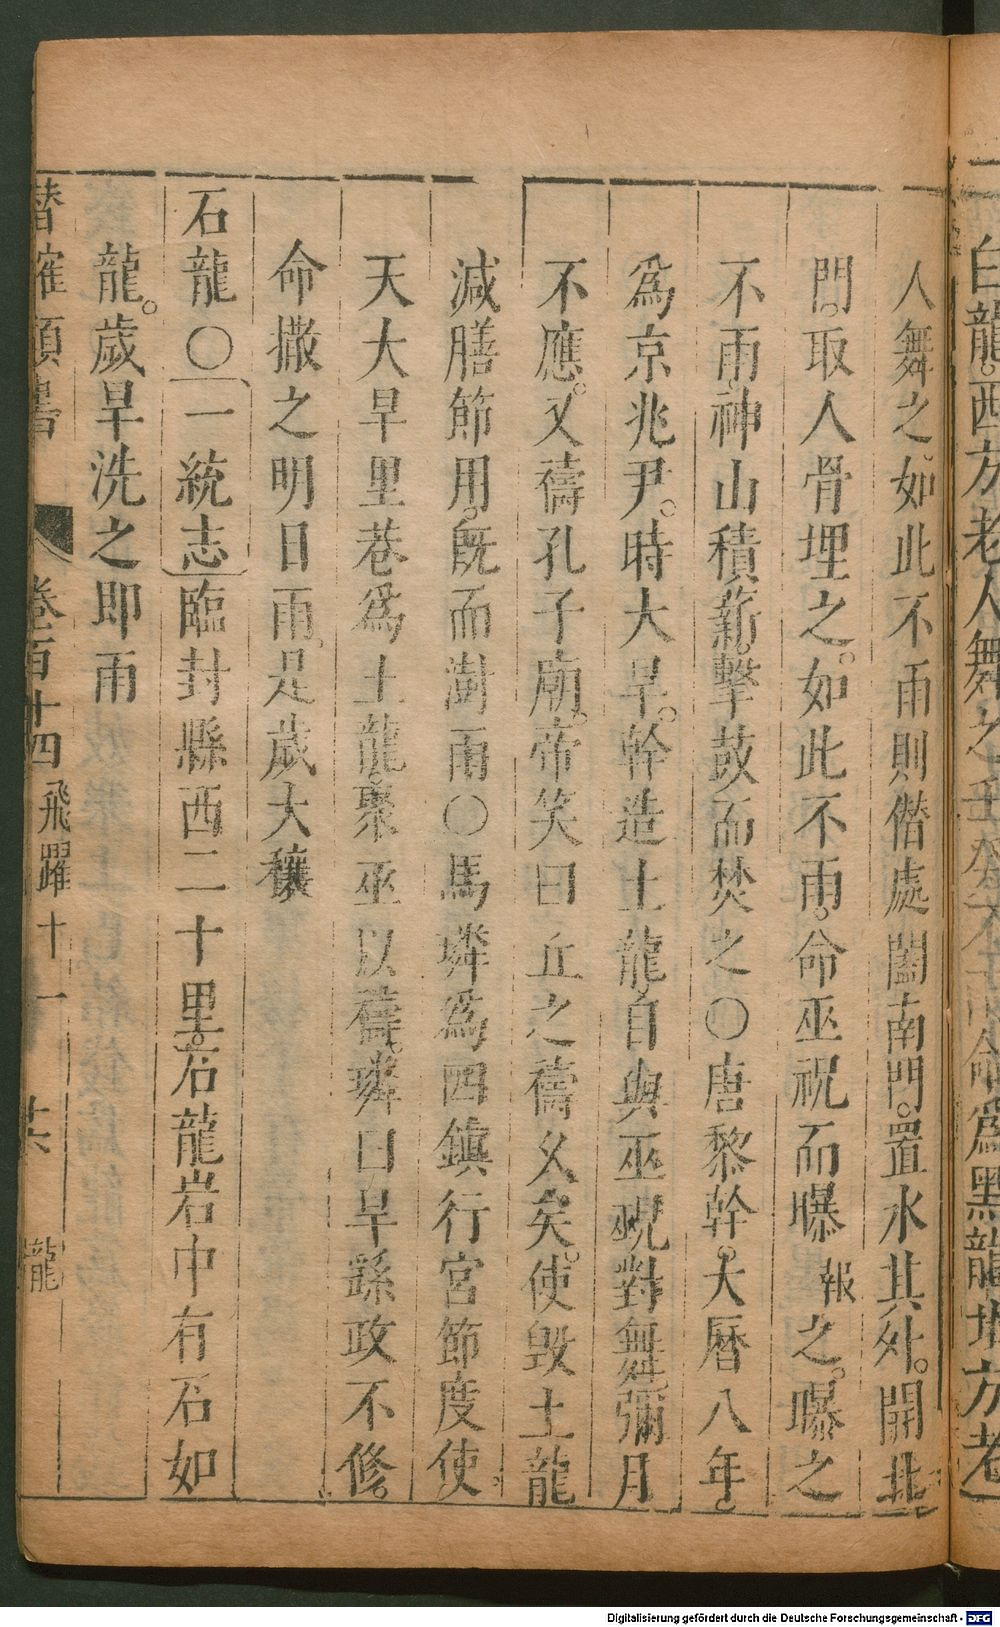 白龍。西方老人舞之壬癸不雨命爲黑龍北方老
人舞之。如此不雨則僭處闔南門。置水其外。開北
門。取人骨埋之。如此不雨。命巫祝而曝報之。曝之
不雨。神山積薪。擊鼓而焚之〇唐黎幹。大曆八年。
爲京兆尹。時大旱。幹造土龍自與巫覡對舞。彌月
不應。又禱孔子廟。帝笑曰丘之禱久矣。使毀土龍
減膳節用。既而澍雨〇馬璘爲四鎮行宮節度使。
天大旱里巷爲土龍聚巫以禱。璘曰旱繇政不修。
命撤之明日雨。是歲大穰
石龍〇一統志臨封縣西二十里。石龍岩中有石如
龍。歲旱洗之即雨
潛確類書 卷百十四 飛躍十一 廿六 龍
Digitalisierung gefördert durch die Deutsche Forschungsgemeinschaft - DFG